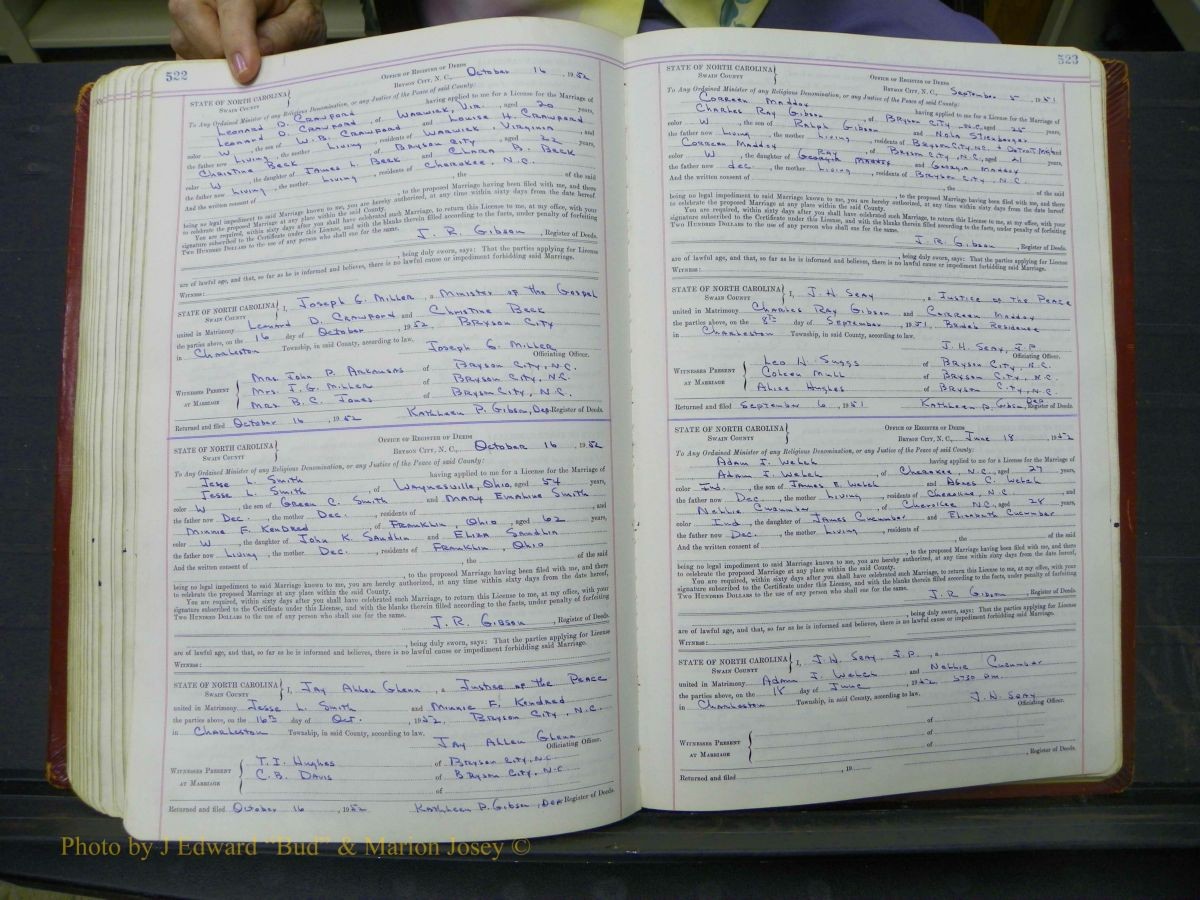 522
OFFICE OF REGISTER OF DEEDS
BRYSON CITY, N. C., October 16, 1952
STATE OF NORTH CAROLINA
SWAIN COUNTY
To Any Ordained Minister of any Religious Denomination, or any Justice of the Peace of said County:
Leonard D. Crawford having applied to me for a License for the Marriage of
Leonard D. Crawford of Warwick, Vir., aged 20 years,
color W, the son of W. B. Crawford and Louise H. Crawford
the father now Living, the mother Living, residents of Warwick, Virginia, and
Christine Beck of Bryson City, aged 22 years,
color W, the daughter of James L. Beck and Clara B. Beck
the father now Living, the mother Living, residents of Cherokee, N.C.
And the written consent of , the of the said
, to the proposed Marriage having been filed with me, and there
being no legal impediment to said Marriage known to me, you are hereby authorized, at any time within sixty days from the date hereof,
to celebrate the proposed Marriage at any place within the said County.
You are required, within sixty days after you shall have celebrated such Marriage, to return this License to me, at my office, with your
signature subscribed to the Certificate under this License, and with the blanks therein filled according to the facts, under penalty of forfeiting
TWO HUNDRED DOLLARS to the use of any person who shall sue for the same.
J. R. Gibson, Register of Deeds.
, being duly sworn, says: That the parties applying for License
are of lawful age, and that, so far as he is informed and believes, there is no lawful cause or impediment forbidding said Marriage.
WITNESS:
STATE OF NORTH CAROLINA
SWAIN COUNTY
I, Joseph G. Miller, a Minister of the Gospel
united in Matrimony Lenard D. Crawford and Christine Beck
the parties above, on the 16 day of October, 1952, Bryson City
in Charleston Township, in said County, according to law.
Joseph G. Miller
Officiating Officer.
WITNESSES PRESENT
AT MARRIAGE
Mrs. John P. Arkansas of Bryson City, N.C.
Mrs. J. G. Miller of Bryson City, N.C.
Mrs. B. C. Jones of Bryson City, N.C.
Returned and filed October 16, 1952 Kathleen P. Gibson, Dep. Register of Deeds.
OFFICE OF REGISTER OF DEEDS
BRYSON CITY, N. C., October 16, 1952
STATE OF NORTH CAROLINA
SWAIN COUNTY
To Any Ordained Minister of any Religious Denomination, or any Justice of the Peace of said County:
Jesse L. Smith having applied to me for a License for the Marriage of
Jesse L. Smith of Waynesville, Ohio, aged 54 years,
color W, the son of Green C. Smith and Mary Emaline Smith
the father now Dec., the mother Dec., residents of , and
Minnie F. Kendred of Franklin, Ohio, aged 62 years,
color W, the daughter of John K. Sandlin and Eliza Sandlin
the father now Living, the mother Dec., residents of Franklin, Ohio
And the written consent of , the of the said
, to the proposed Marriage having been filed with me, and there
being no legal impediment to said Marriage known to me, you are hereby authorized, at any time within sixty days from the date hereof,
to celebrate the proposed Marriage at any place within the said County.
You are required, within sixty days after you shall have celebrated such Marriage, to return this License to me, at my office, with your
signature subscribed to the Certificate under this License, and with the blanks therein filled according to the facts, under penalty of forfeiting
TWO HUNDRED DOLLARS to the use of any person who shall sue for the same.
J. R. Gibson, Register of Deeds.
, being duly sworn, says: That the parties applying for License
are of lawful age, and that, so far as he is informed and believes, there is no lawful cause or impediment forbidding said Marriage.
WITNESS:
STATE OF NORTH CAROLINA
SWAIN COUNTY
I, Jay Allen Glenn, a Justice of the Peace
united in Matrimony Jesse L. Smith and Minnie F. Kendred
the parties above, on the 16th day of Oct., 1952, Bryson City, N.C.
in Charleston Township, in said County, according to law.
Jay Allen Glenn
Officiating Officer.
WITNESSES PRESENT
AT MARRIAGE
T. I. Hughes of Bryson City, N.C.
C. B. Davis of Bryson City, N.C
of
Returned and filed October 16, 1952 Kathleen P. Gibson, Dep. Register of Deeds.
523
OFFICE OF REGISTER OF DEEDS
BRYSON CITY, N. C., September 5, 1951
STATE OF NORTH CAROLINA
SWAIN COUNTY
To Any Ordained Minister of any Religious Denomination, or any Justice of the Peace of said County:
Correen Maddox having applied to me for a License for the Marriage of
Charles Ray Gibson of Bryson City, N.C, aged 25 years,
color W, the son of Ralph Gibson and Nola
the father now Living, the mother Living, residents of Bryson City, N.C. & Detroit, Michigan
Correen Maddox of Bryson City, N.C., aged 21
color W, the daughter of Ray Maddox and Georgia Maddox
the father now dec., the mother Living, residents of Bryson City, N.C.
And the written consent of , the of the said
, to the proposed Marriage having been filed with me, and there
being no legal impediment to said Marriage known to me, you are hereby authorized, at any time within sixty days from the date hereof,
to celebrate the proposed Marriage at any place within the said County.
You are required, within sixty days after you shall have celebrated such Marriage, to return this License to me, at my office, with your
signature subscribed to the Certificate under this License, and with the blanks therein filled according to the facts, under penalty of forfeiting
TWO HUNDRED DOLLARS to the use of any person who shall sue for the same.
J. R. Gibson, Register of Deeds.
, being duly sworn, says: That the parties applying for License
are of lawful age, and that, so far as he is informed and believes, there is no lawful cause or impediment forbidding said Marriage.
WITNESS:
STATE OF NORTH CAROLINA
SWAIN COUNTY
I, J. H. Seay, a Justice of the Peace
united in Matrimony Charles Ray Gibson and Correen Maddox
the parties above, on the 8th day of September, 1951, Brides Residence
in Charleston Township, in said County, according to law.
J. H. Seay, J.P.
Officiating Officer.
WITNESSES PRESENT
AT MARRIAGE
Leo H. Suggs of Bryson City, N.C.
Coleen Mull of Bryson City, N.C.
Alice Hughes of Bryson City, N.C.
Returned and filed September 6, 1951 Kathleen P. Gibson, Dep Register of Deeds.
OFFICE OF REGISTER OF DEEDS
BRYSON CITY, N. C., June 18, 1952
STATE OF NORTH CAROLINA
SWAIN COUNTY
To Any Ordained Minister of any Religious Denomination, or any Justice of the Peace of said County:
Adam I. Welch having applied to me for a License for the Marriage of
Adam I. Welch of Cherokee, N.C., aged 27 years,
color Ind., the son of James E. Welch and Agnes C. Welch
the father now Dec., the mother Living, residents of Cherokee, N.C., and
Nebbie Cucumber of Cherokee N.C., aged 28 years,
color Ind, the daughter of James Cucumber and Elizabeth Cucumber
the father now Dec., the mother Living, residents of
And the written consent of , the of the said
, to the proposed Marriage having been filed with me, and there
being no legal impediment to said Marriage known to me, you are hereby authorized, at any time within sixty days from the date hereof,
to celebrate the proposed Marriage at any place within the said County.
You are required, within sixty days after you shall have celebrated such Marriage, to return this License to me, at my office, with your
signature subscribed to the Certificate under this License, and with the blanks therein filled according to the facts, under penalty of forfeiting
TWO HUNDRED DOLLARS to the use of any person who shall sue for the same.
J. R. Gibson, Register of Deeds.
, being duly sworn, says: That the parties applying for License
are of lawful age, and that, so far as he is informed and believes, there is no lawful cause or impediment forbidding said Marriage.
WITNESS:
STATE OF NORTH CAROLINA
SWAIN COUNTY
I, J. H. Seay J.P., a
united in Matrimony Adam I. Welch and Nebbie Cucumber
the parties above, on the 18 day of June, 1952 5:30 P.M.
in Charleston Township, in said County, according to law.
J. H. Seay
Officiating Officer.
WITNESSES PRESENT
AT MARRIAGE
of
of
of
, Register of Deeds.
Returned and filed , 19
Photo by J Edward "Bud" & Marion Josey ©